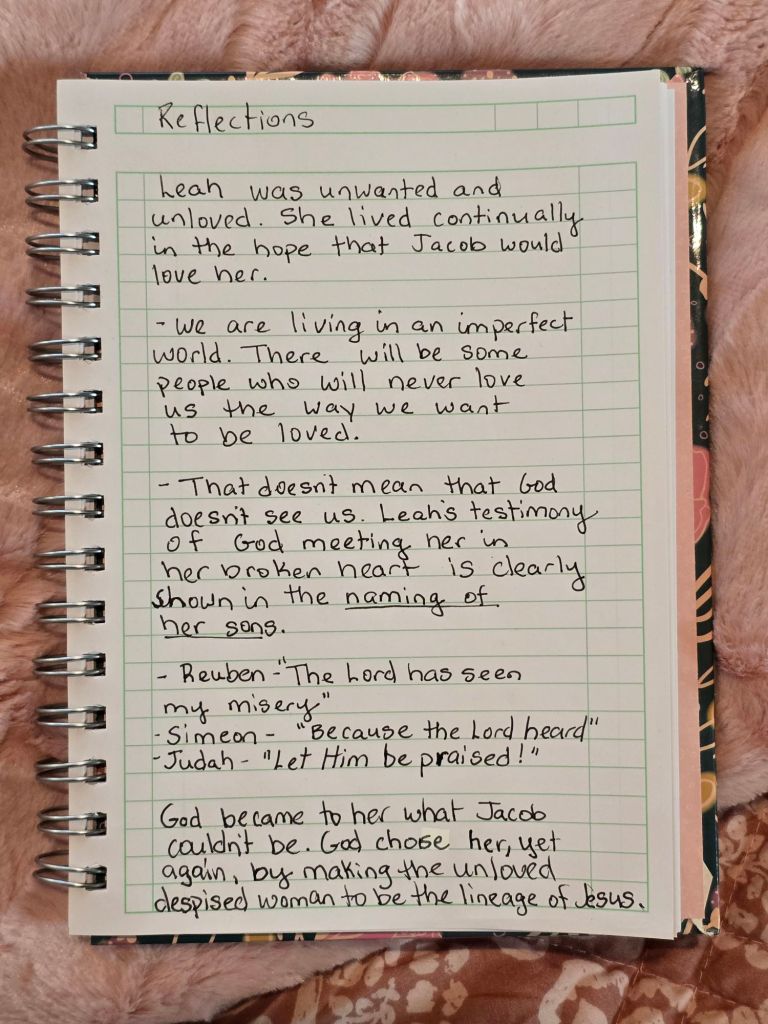 Reflections
Leah was unwanted and
unloved. She lived continually
in the hope that Jacob would
love her.
- We are living in an imperfect
world. There will be some
people who will never love
us the way we want
to be loved.
- That doesn't mean that God
doesn't see us. Leah's testimony
of God meeting her in
her broken heart is clearly
shown in the naming of
her sons.
- Reuben - "The Lord has seen
my misery"
- Simeon - "Because the Lord heard"
- Judah - "Let Him be praised!"
God became to her what Jacob
couldn't be. God chose her, yet
again, by making the unloved
despised woman to be the lineage of Jesus.